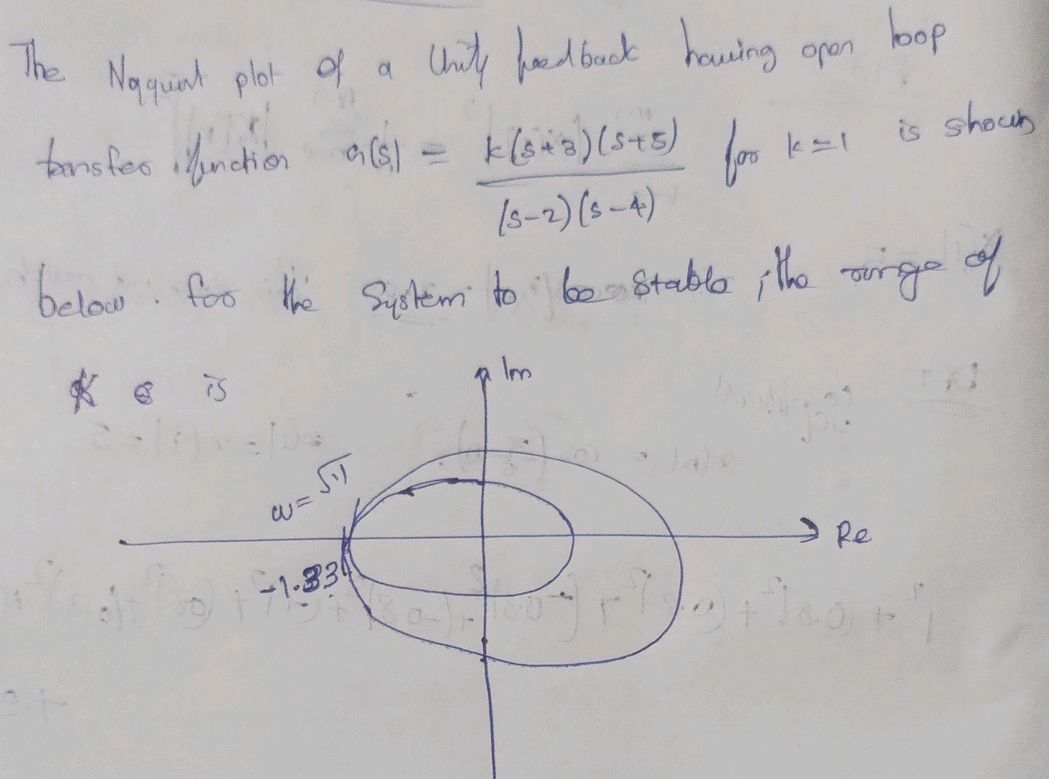 The Nyquist plot of a Unity feedback having open loop
transfer function G(s) = k(s+3)(s+5) / (s-2)(s-4) for k=1 is shown
below. for the System to be Stable, the range of
K is
Im
ω=√11
Re
-1.33